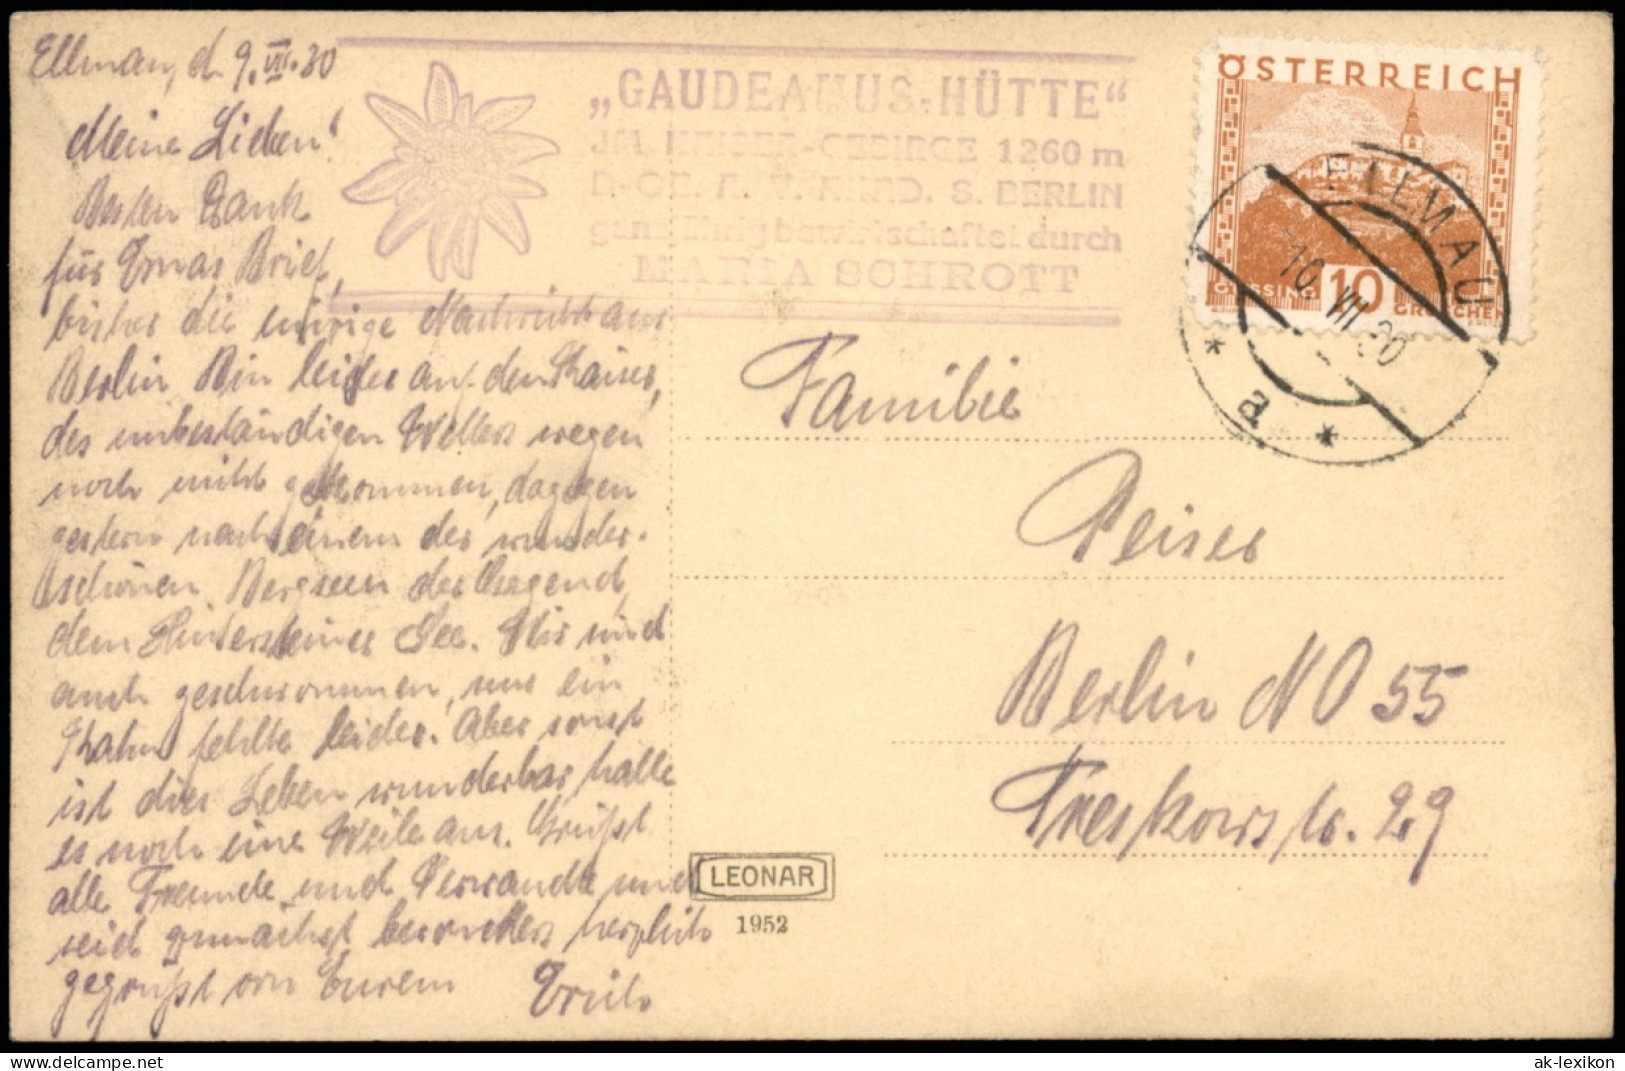 Ellmau, d. 9. VII. 30
Meine Lieben!
Besten Dank
für Ernas Brief,
bisher die einzige Nachricht aus
Berlin. Bin leider auf den Kaiser,
des unbeständigen Wetters wegen
noch nicht gekommen, dagegen
gestern nach einem der wunder-
schönen Bergseen der Gegend,
dem Hintersteiner See. Wir sind
auch geschwommen, nur ein
Kahn fehlte leider. Aber sonst
ist dies Leben wunderbar, halte
es noch eine Weile aus. Grüßt
alle Freunde und Verwandte und
seid zunächst besonders herzlich
gegrüßt von Eurem Erich
„GAUDEAMUS-HÜTTE“
IM KAISER-GEBIRGE 1260 m
D.-OE. A. V. AKAD. S. BERLIN
ganzjährig bewirtschaftet durch
MARIA SCHROTT
ÖSTERREICH
GÜSSING 10 GROSCHEN
ELLMAU
10. VII 30
* a *
Familie
Peiser
Berlin NO 55
Treskowstr. 29
LEONAR
1952
www.delcampe.net
ak-lexikon